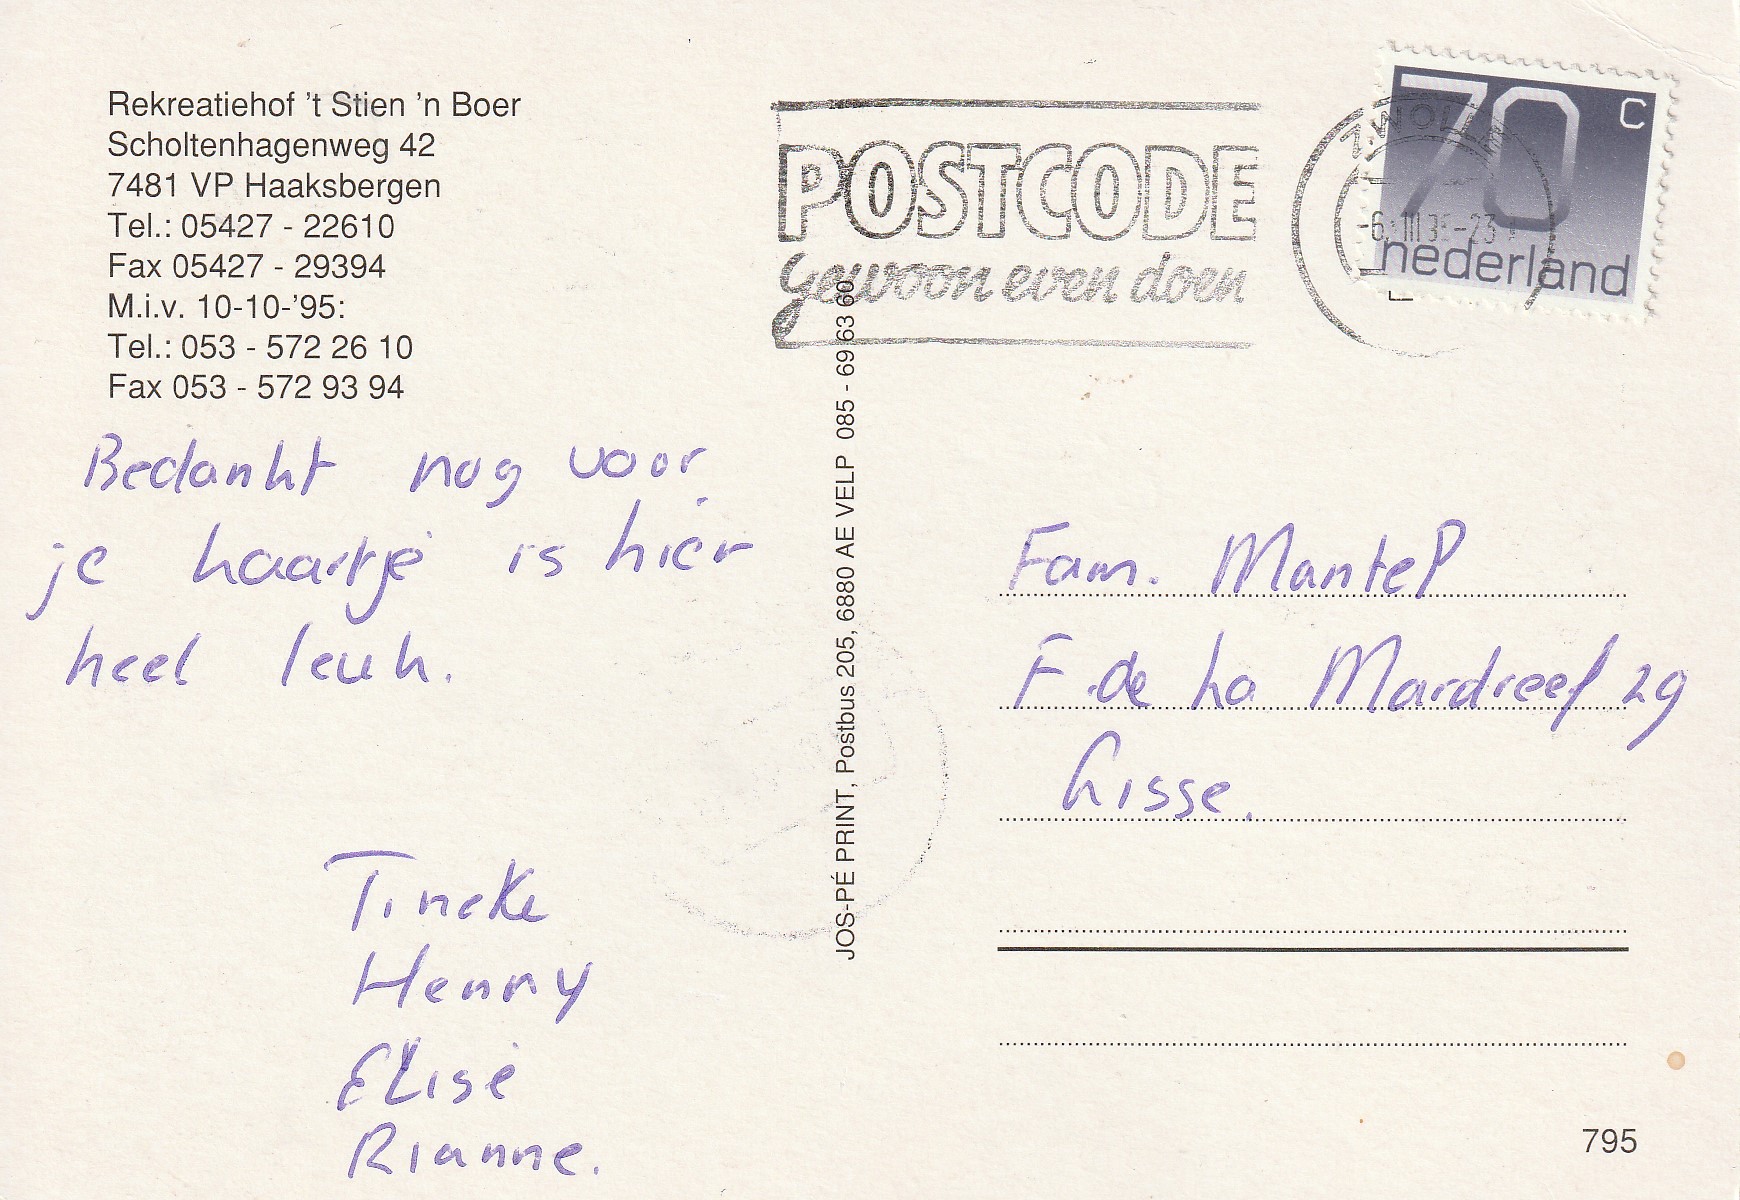 Rekreatiehof 't Stien 'n Boer
Scholtenhagenweg 42
7481 VP Haaksbergen
Tel.: 05427 - 22610
Fax 05427 - 29394
M.i.v. 10-10-'95:
Tel.: 053 - 572 26 10
Fax 053 - 572 93 94
Bedankt nog voor
je kaartje is hier
heel leuk.
Tineke
Henny
Elise
Rianne.
JOS-PÉ PRINT, Postbus 205, 6880 AE VELP 085 - 69 63 60
POSTCODE
gewoon even doen
70 C
nederland
Fam. Mantel
F. de La Mardreef 29
Lisse.
795